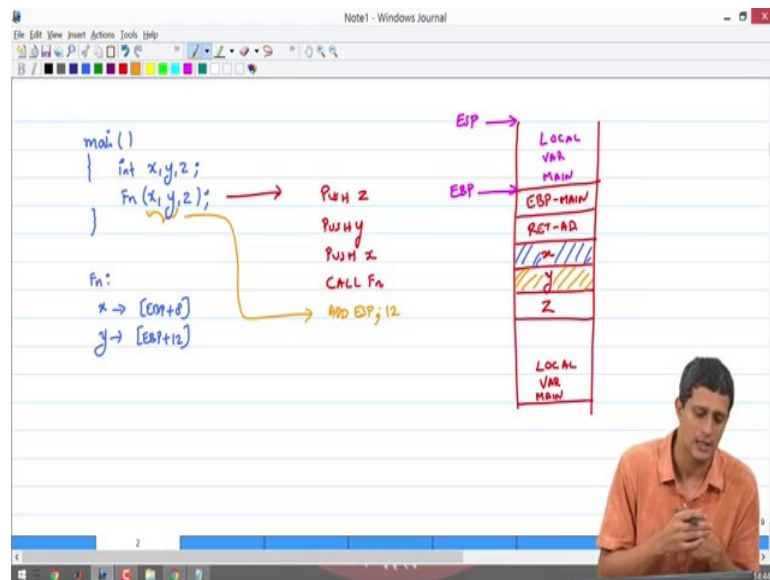 Note1 - Windows Journal
File Edit View Insert Actions Tools Help
B I
main()
{ int x,y,z;
Fn (x,y,z);
}
PUSH Z
PUSH y
PUSH x
CALL Fn
ADD ESP; 12
Fn:
x → [EBP+8]
y → [EBP+12]
ESP →
LOCAL
VAR
MAIN
EBP →
EBP-MAIN
RET-AD
x
y
Z
LOCAL
VAR
MAIN
2